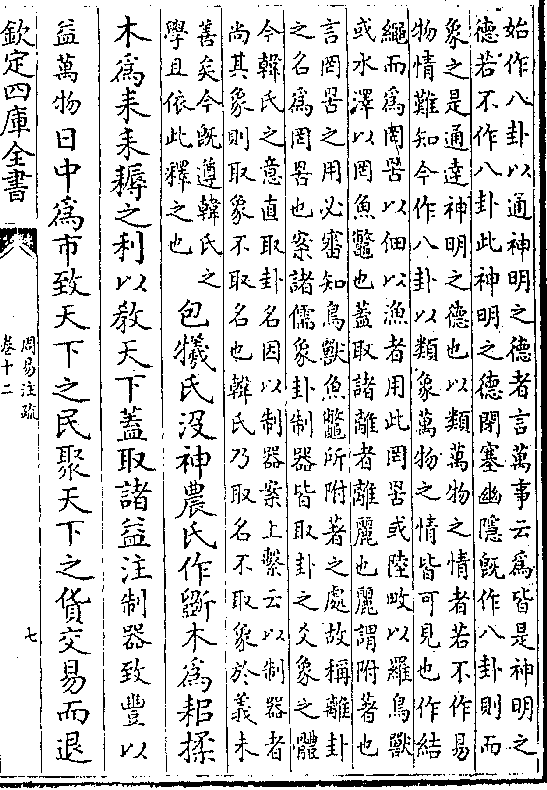 始作八卦以通神明之德者言萬事云為皆是神明之
德若不作八卦此神明之德閉塞幽隱旣作八卦則而
象之是通達神明之德也以類萬物之情者若不作易
物情難知今作八卦以類象萬物之情皆可見也作結
繩而為罔罟以佃以漁者用此罔罟或陸畋以羅鳥獸
或水澤以罔魚鼈也蓋取諸離者離麗也麗謂附著也
言罔罟之用必審知鳥獸魚鼈所附著之處故稱離卦
之名為罔罟也案諸儒象卦制器皆取卦之爻象之體
今韓氏之意直取卦名因以制器案上繫云以制器者
尚其象則取象不取名也韓氏乃取名不取象於義未
善矣今旣遵韓氏之
學且依此釋之也
包犧氏沒神農氏作斲木為耜揉
木為耒耒耨之利以教天下蓋取諸益注制器致豐以
益萬物日中為市致天下之民聚天下之貨交易而退
欽定四庫全書
周易注疏
卷十二
七